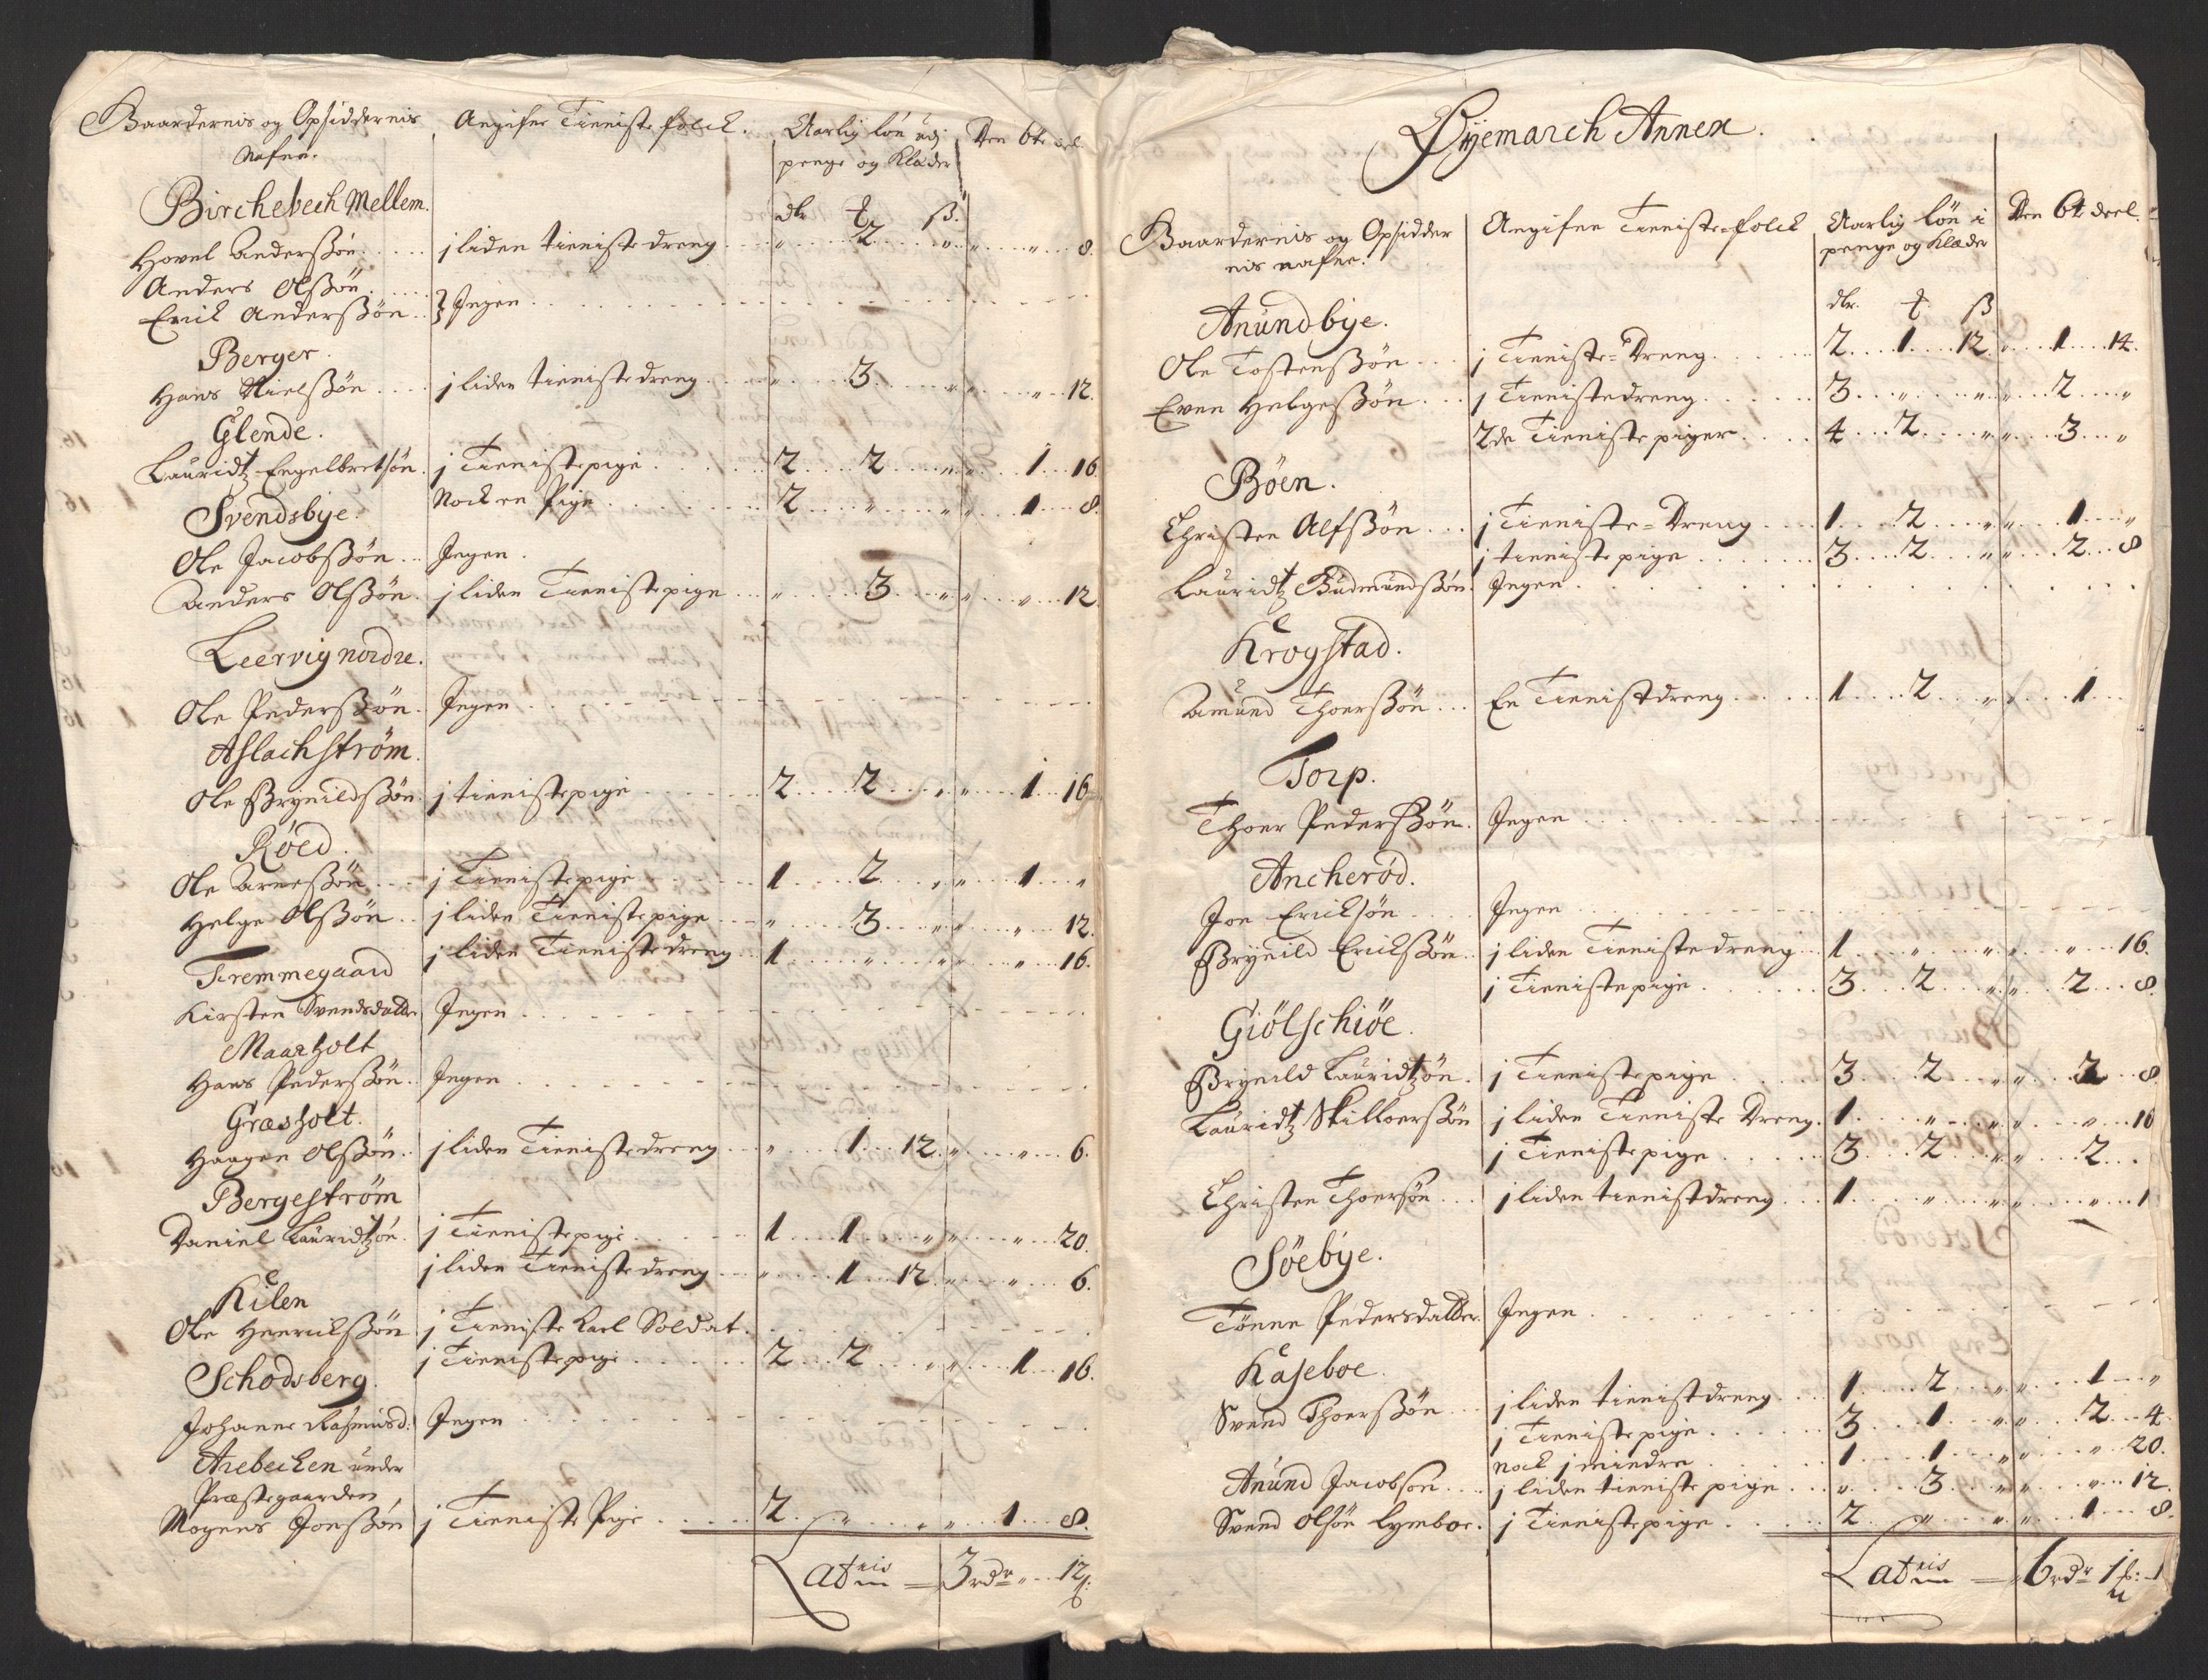 Gaardernis og Opsiddernis Nafne.
Angifne Tieniste folck.
Aarlig lön udj penge og Klæder
Den 6te deel.
dlr ß.
Birchebech Mellem.
Hovel Anderßön . . . j liden tieniste dreng . . . „ 2 „ „ „ 8.
Anders Olßön . . .
Erick Anderßön . . } Ingen . . .
Berger.
Hans Nielßön . . . j liden tieniste dreng . . . „ 3 „ „ „ 12.
Glende.
Lauridtz Engelbretsön. j Tienistepige . . . 2 2 „ „ 1 16
Nock en Pige . . . 2 „ „ „ 1 8.
Svendsbye.
Ole Jacobßön . . Ingen .
Anders Olßön . j liden Tienistepige . . . „ 3 „ „ „ 12.
Leervig nordre.
Ole Pederßön . Ingen . . .
Aslachström.
Ole Brynildßön . j tienistepige . . . 2 2 „ „ 1 16
Röed.
Ole Arneßön . . . j Tienistepige . . . 1 2 „ „ 1 „
Helge Olßön . . j liden Tienistepige . . . „ 3 „ „ „ 12.
j liden Tienistedreng . . 1 „ „ „ „ 16.
Tremmegaard
Kirsten Svendsdatter Ingen . . .
Maarholt
Hans Pederßön . Ingen . . .
Græsholt.
Haagen Olßön . . j liden Tienistedreng . . . „ 1 12. „ „ 6.
Bergeström
Daniel Lauridtzön. j Tienistepige . . . 1 1 „ „ „ 20.
j liden Tienistedreng . . . „ 1 12. „ „ 6.
Kilen
Ole Henrickßön j Tieniste Karl Soldat. . . .
j Tienistepige . . . 2 2 „ „ 1 16.
Schodsberg.
Johanne Rasmusd: Ingen . . .
Arebecken under
Præstegaarden
Mogens Jonßön j Tieniste Pige . . . 2 „ „ „ 1 8.
Latris = 3 rdr „ 12 ß:
Øyemarch Annex.
Gaardernis og Opsidder nis nafne.
Angifne Tieniste-folck
Aarlig lön i penge og Klæder
Den 6te deel.
dlr. ß
Anundbye.
Ole Tostenßön . . . j Tieniste-Dreng . . . 2 1 12. „ 1 14.
Even Helgeßön . . . j Tienistedreng . . . 3 „ „ „ 2 „
2de Tieniste piger . . . 4 2 „ „ 3 „
Böen.
Christen Alfßön . . . j Tieniste-Dreng . . . 1 2 „ „ 1 „
j tieniste pige . . . 3 2 „ „ 2 8
Lauridtz Gudmundßön. Ingen . . .
Krogstad.
Amund Thoerßön . . . En Tienistdreng . . . 1 2 „ „ 1
Torp.
Thoer Pederßön. Ingen . . .
Ancheröd.
Jon Ericksön . . . Ingen . . .
Brynild Erickßön . . j liden Tienistedreng . . 1 „ „ „ „ 16.
j Tienistepige . . . 3 2 „ „ 2 8.
Giölschiöe.
Brynild Lauridtzön . j Tienistepige . . . 3 2 „ „ 2 8
Lauridtz Skilloerßön j liden Tieniste Dreng. 1 „ „ „ „ 16
j Tienistepige . . . 3 2 „ „ 2 .
Christen Thoersön . . . j liden tienistdreng . . . 1 „ „ „ „ 1
Söebye.
Tönne Pedersdatter. Ingen . . .
Kaseboe.
Svend Thoerßön . . . j liden tienistdreng . . . 1 2 „ „ 1 „
j Tienistepige . . . 3 1 „ „ 2 4
nock j mindre . . . 1 1 „ „ „ 20.
Anund Jacobsön . . . j liden tieniste pige . . . „ 3 „ „ „ 12.
Svend Olsön Lymboe. j Tienistepige . . . 2 „ „ „ 1 8.
Latris = 6 rdr 1